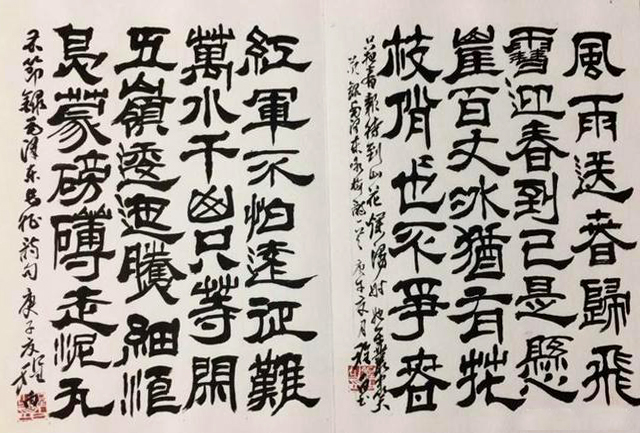 風雨送春歸飛
雪迎春到已是懸
崖百丈冰猶有花
枝俏也不爭春
春報待到山花爛漫時她在叢中笑
録毛澤東咏梅 庚子夏月
紅軍不怕遠征難
萬水千山只等閑
五嶺逶迤騰細浪
烏蒙磅礴走泥丸
節録毛澤東長征詩句 庚子夏